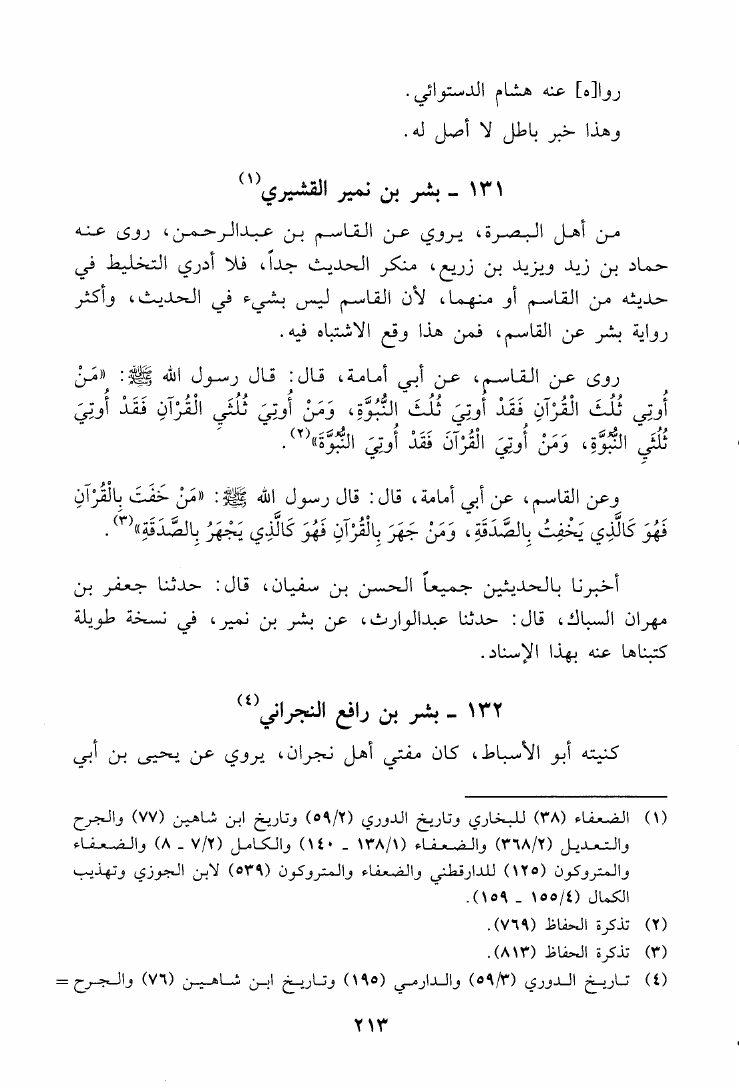 روا[ه] عنه هشام الدستوائي.
وهذا خبر باطل لا أصل له.
١٣١ ـ بشر بن نمير القشيري(١)
من أهل البصرة، يروي عن القاسم بن عبدالرحمن، روى عنه
حماد بن زيد ويزيد بن زريع، منكر الحديث جداً، فلا أدري التخليط في
حديثه من القاسم أو منهما، لأن القاسم ليس بشيء في الحديث، وأكثر
رواية بشر عن القاسم، فمن هذا وقع الاشتباه فيه.
روى عن القاسم، عن أبي أمامة، قال: قال رسول الله ﷺ: «مَنْ
أُوتِي ثُلُثَ الْقُرْآنِ فَقَدْ أُوتِيَ ثُلُثَ النُّبُوَّةِ، وَمَنْ أُوتِيَ ثُلُثَي الْقُرْآنِ فَقَدْ أُوتِيَ
ثُلُثَي النُّبُوَّةِ، وَمَنْ أُوتِيَ الْقُرْآنَ فَقَدْ أُوتِيَ النُّبُوَّةَ»(٢).
وعن القاسم، عن أبي أمامة، قال: قال رسول الله ﷺ: «مَنْ خَفَتَ بِالْقُرْآنِ
فَهُوَ كَالَّذِي يَخْفِتُ بِالصَّدَقَةِ، وَمَنْ جَهَرَ بِالْقُرْآنِ فَهُوَ كَالَّذِي يَجْهَرُ بِالصَّدَقَةِ»(٣).
أخبرنا بالحديثين جميعاً الحسن بن سفيان، قال: حدثنا جعفر بن
مهران السباك، قال: حدثنا عبدالوارث، عن بشر بن نمير، في نسخة طويلة
كتبناها عنه بهذا الإسناد.
١٣٢ ـ بشر بن رافع النجراني(٤)
كنيته أبو الأسباط، كان مفتي أهل نجران، يروي عن يحيى بن أبي
(١) الضعفاء (٣٨) للبخاري وتاريخ الدوري (٥٩/٢) وتاريخ ابن شاهين (٧٧) والجرح
والتعديل (٣٦٨/٢) والضعفاء (١٣٨/١ ـ ١٤٠) والكامل (٧/٢ ـ ٨) والضعفاء
والمتروكون (١٢٥) للدارقطني والضعفاء والمتروكون (٥٣٩) لابن الجوزي وتهذيب
الكمال (١٥٥/٤ ـ ١٥٩).
(٢) تذكرة الحفاظ (٧٦٩).
(٣) تذكرة الحفاظ (٨١٣).
(٤) تاريخ الدوري (٥٩/٣) والدارمي (١٩٥) وتاريخ ابن شاهين (٧٦) والجرح =
٢١٣